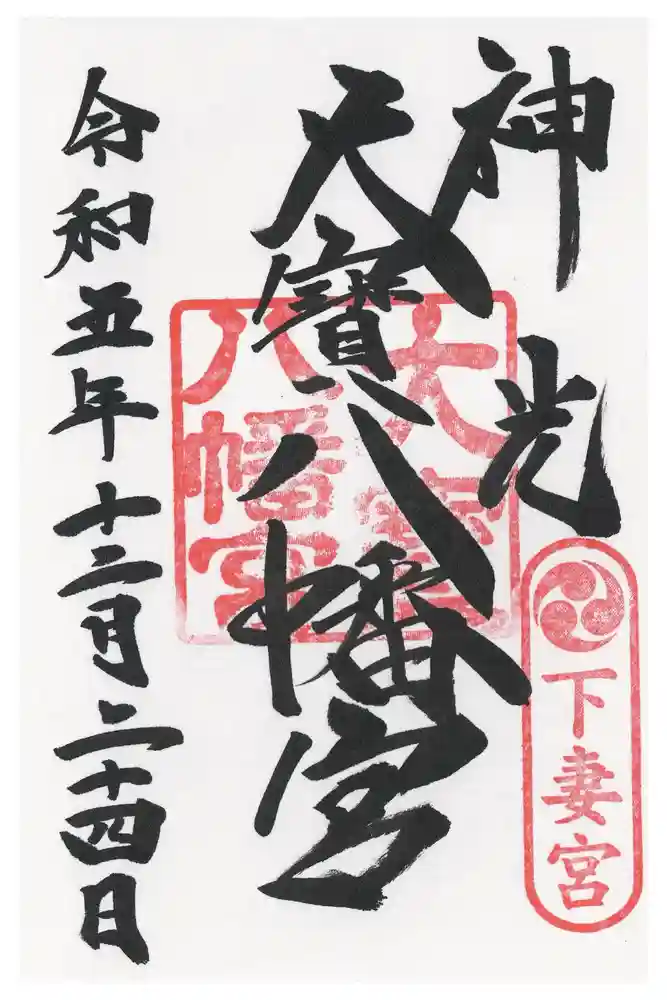 神光
下妻宮
天寶八幡宮
大寶
八幡宮
令和五年十二月二十四日